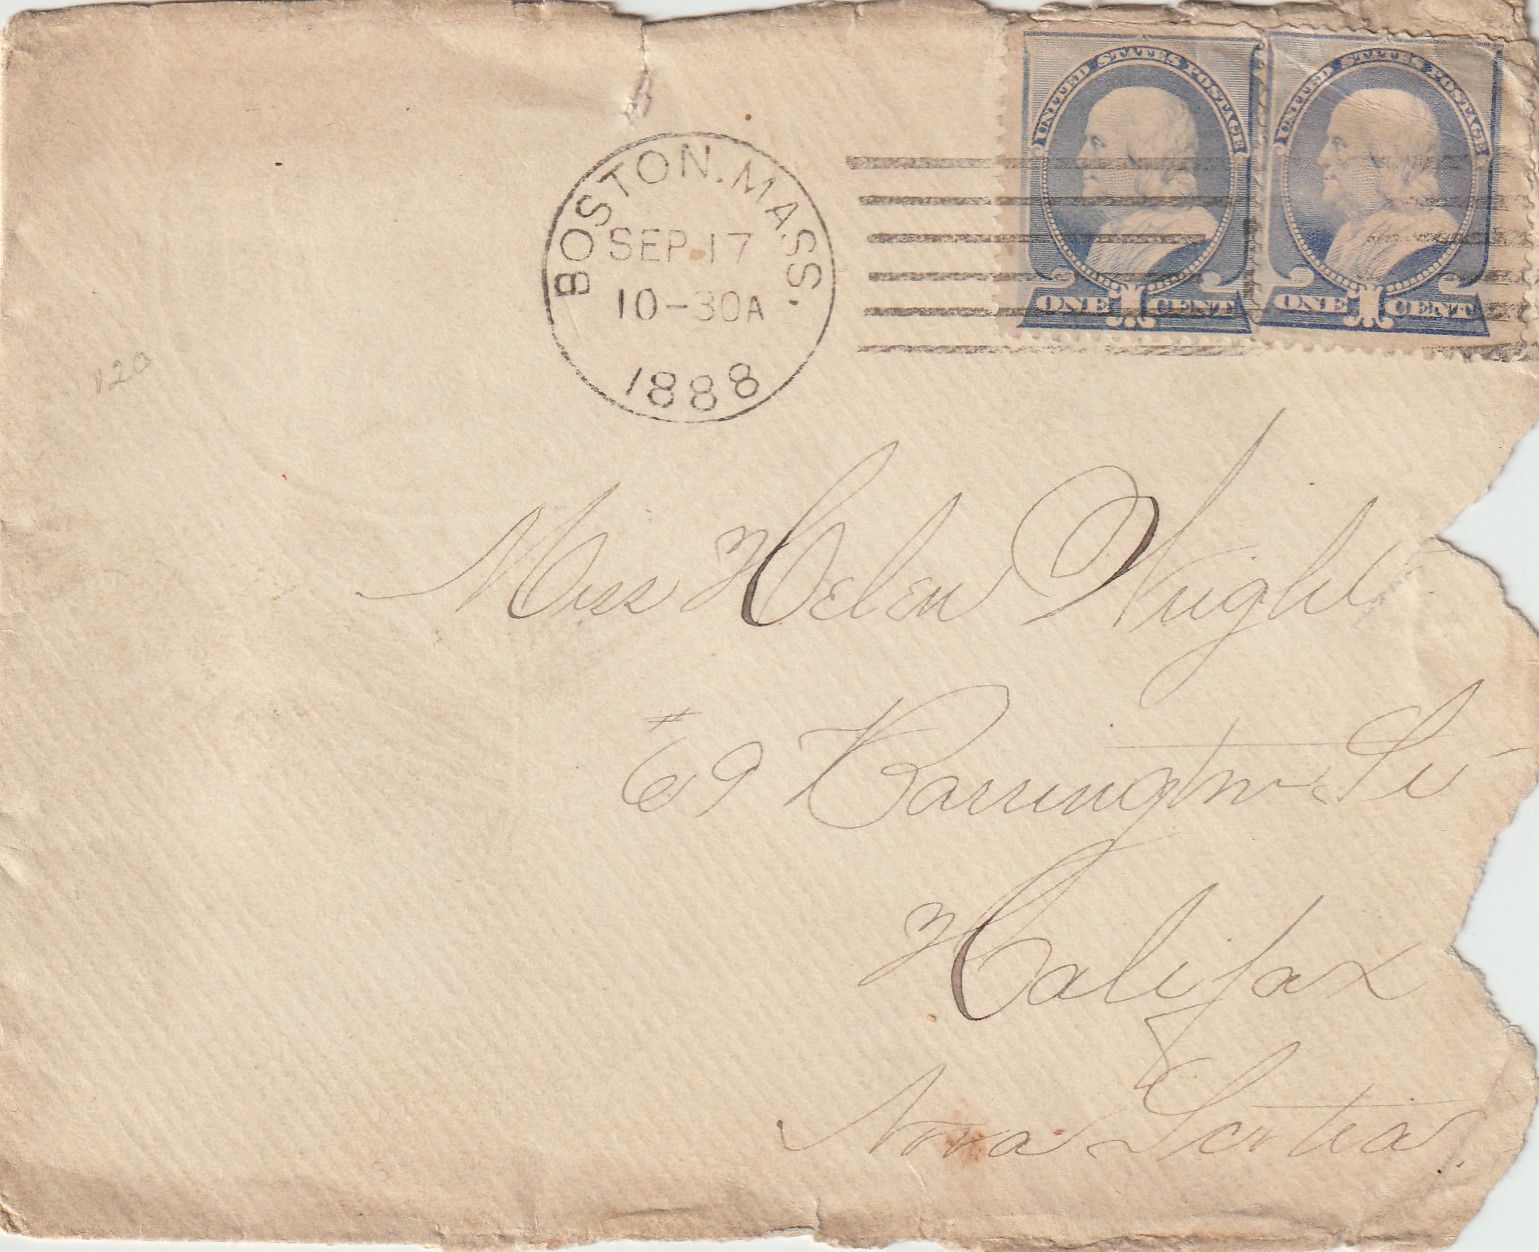 UNITED STATES POSTAGE
ONE 1 CENT
UNITED STATES POSTAGE
ONE 1 CENT
BOSTON, MASS.
SEP 17
10-30A
1888
120
Miss Helen Wright
#69 Barrington St
Halifax
Nova Scotia